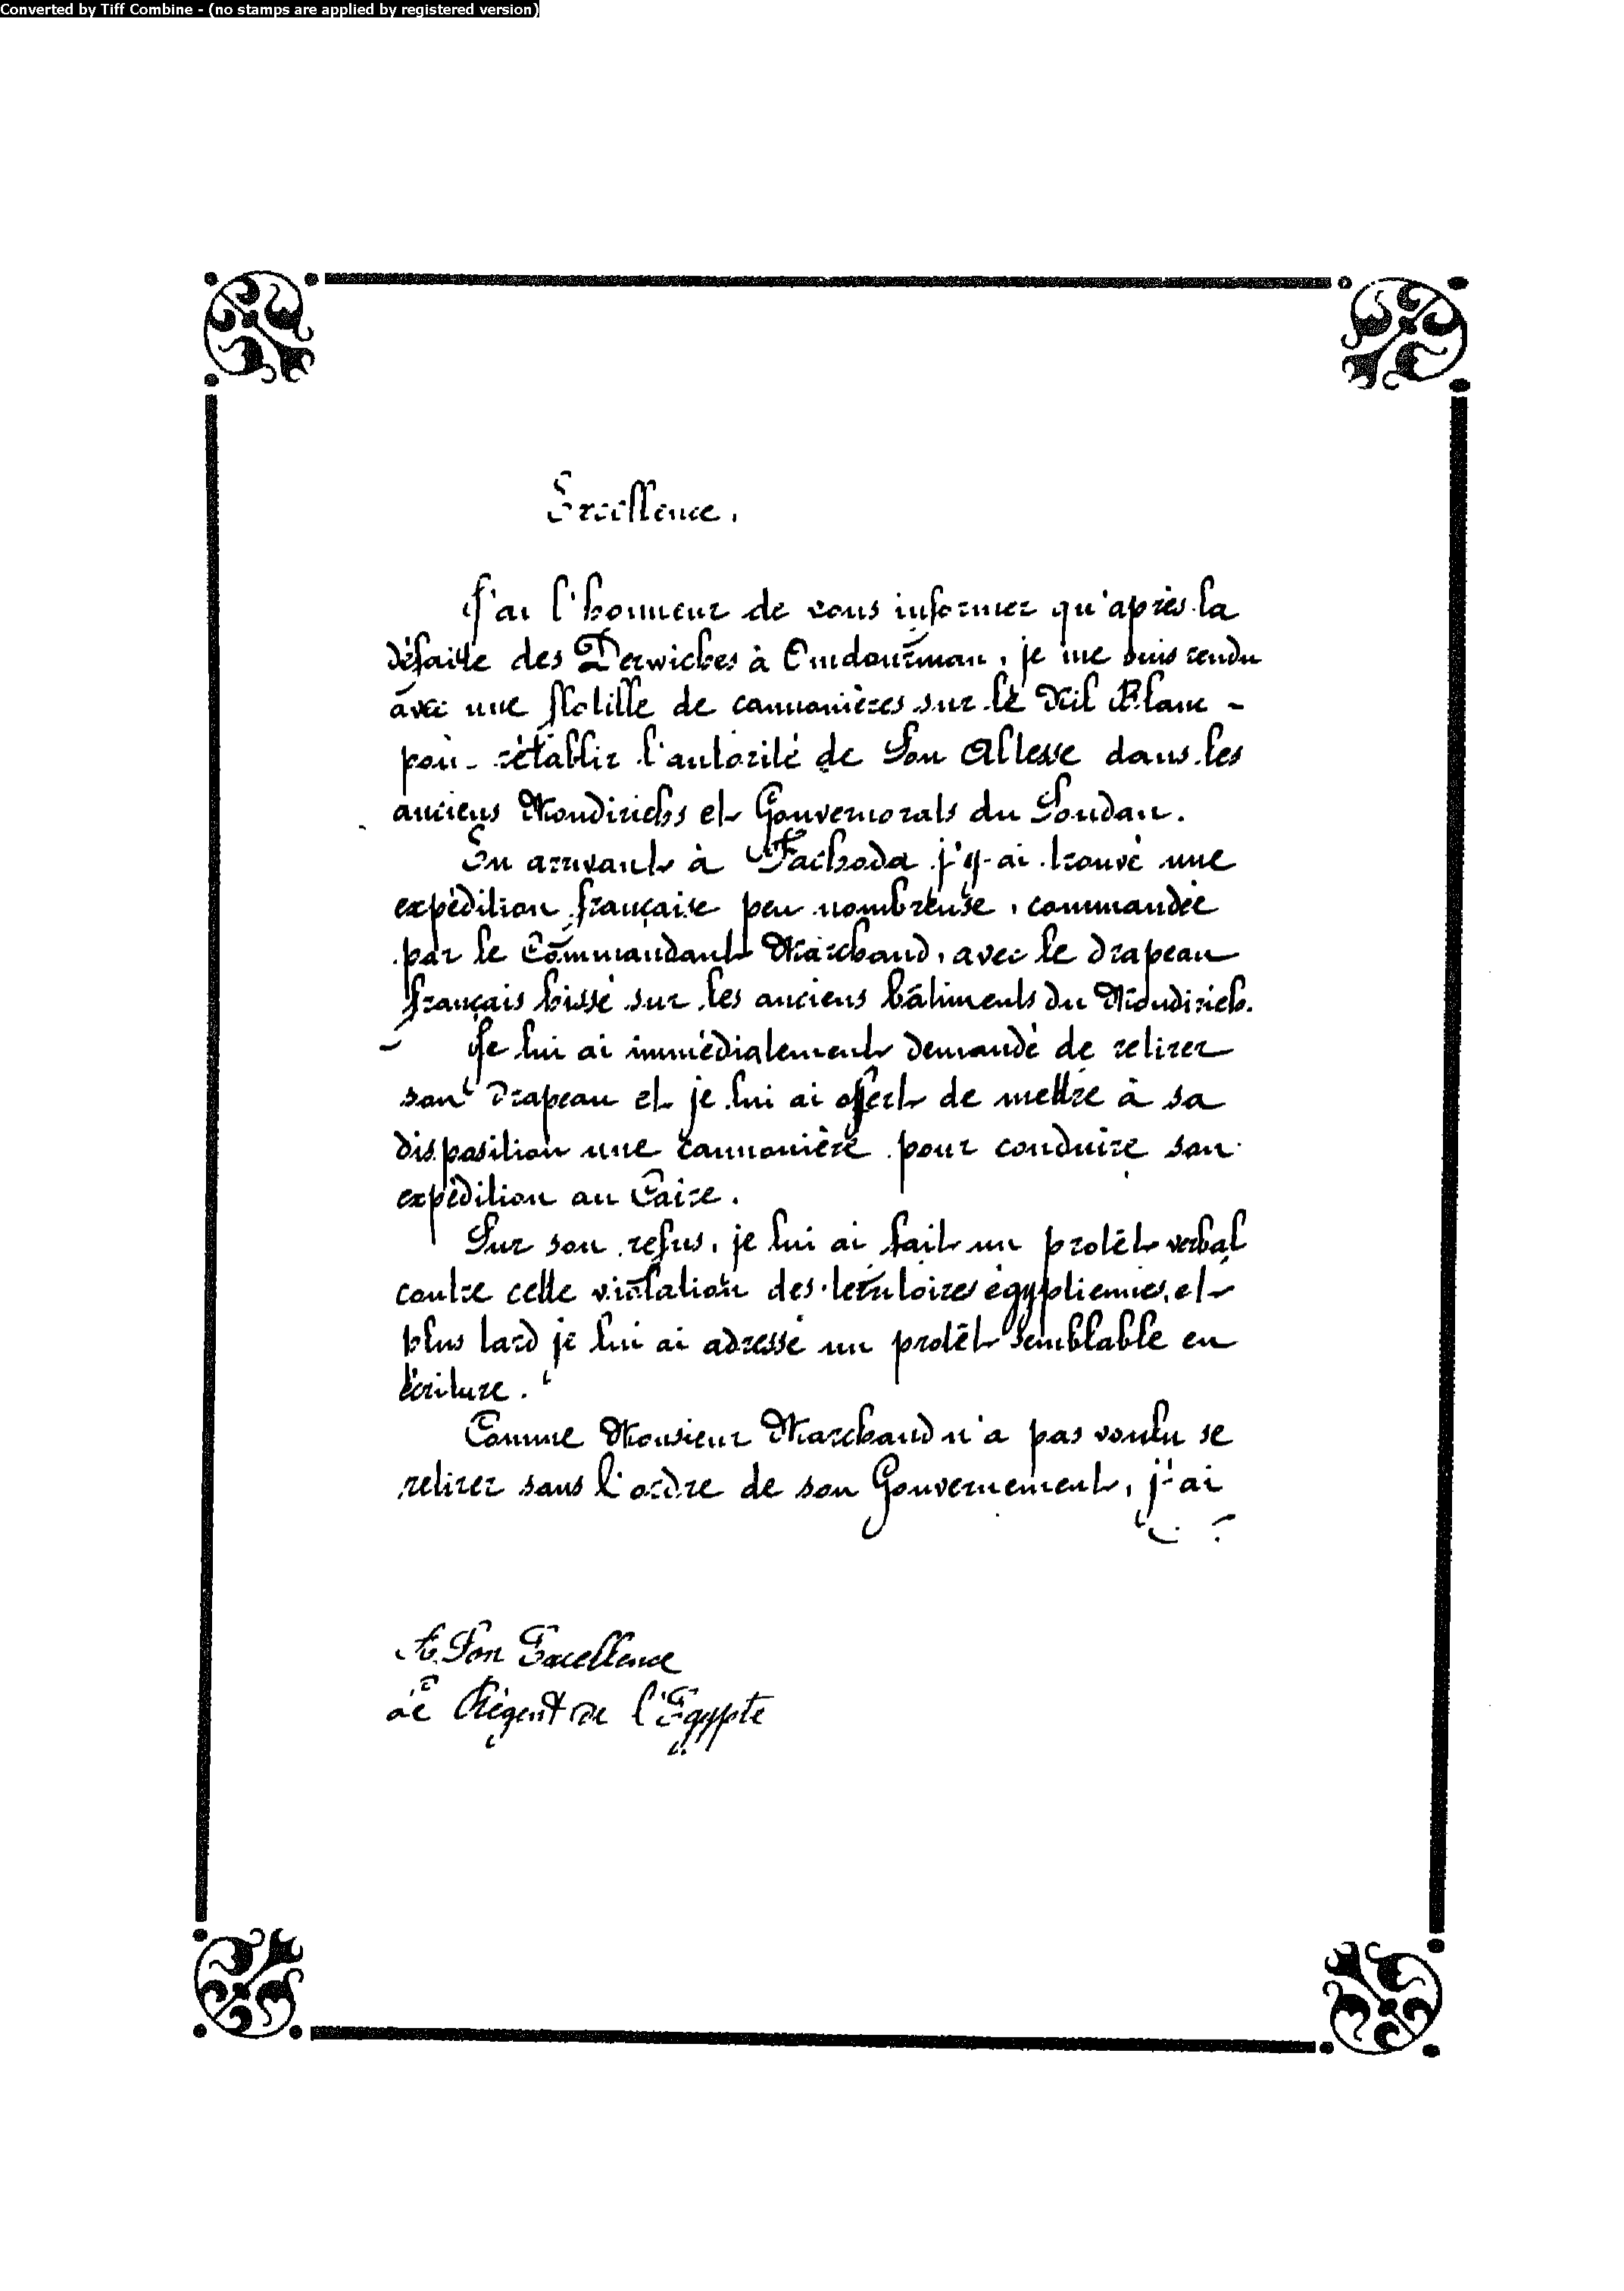 Converted by Tiff Combine - (no stamps are applied by registered version)
Excellence,
J'ai l'honneur de vous informer qu'après la
défaite des Derwiches à Omdourman, je me suis rendu
avec une flotille de cannonières sur le Nil Blanc -
pour rétablir l'autorité de Son Altesse dans les
anciens Moudiriehs et Gouvernorats du Soudan.
En arrivant à Fachoda j'y ai trouvé une
expédition française peu nombreuse, commandée
par le Commandant Marchand, avec le drapeau
français hissé sur les anciens bâtiments du Moudirieh.
Je lui ai immédiatement demandé de retirer
son drapeau et je lui ai offert de mettre à sa
disposition une cannonière pour conduire son
expédition au Caire.
Sur son refus, je lui ai fait un protêt verbal
contre cette violation des territoires égyptiennes, et
plus tard je lui ai adressé un protêt semblable en
écriture.
Comme Monsieur Marchand n'a pas voulu se
retirer sans l'ordre de son Gouvernement, j'ai
A Son Excellence
Le Régent de l'Egypte